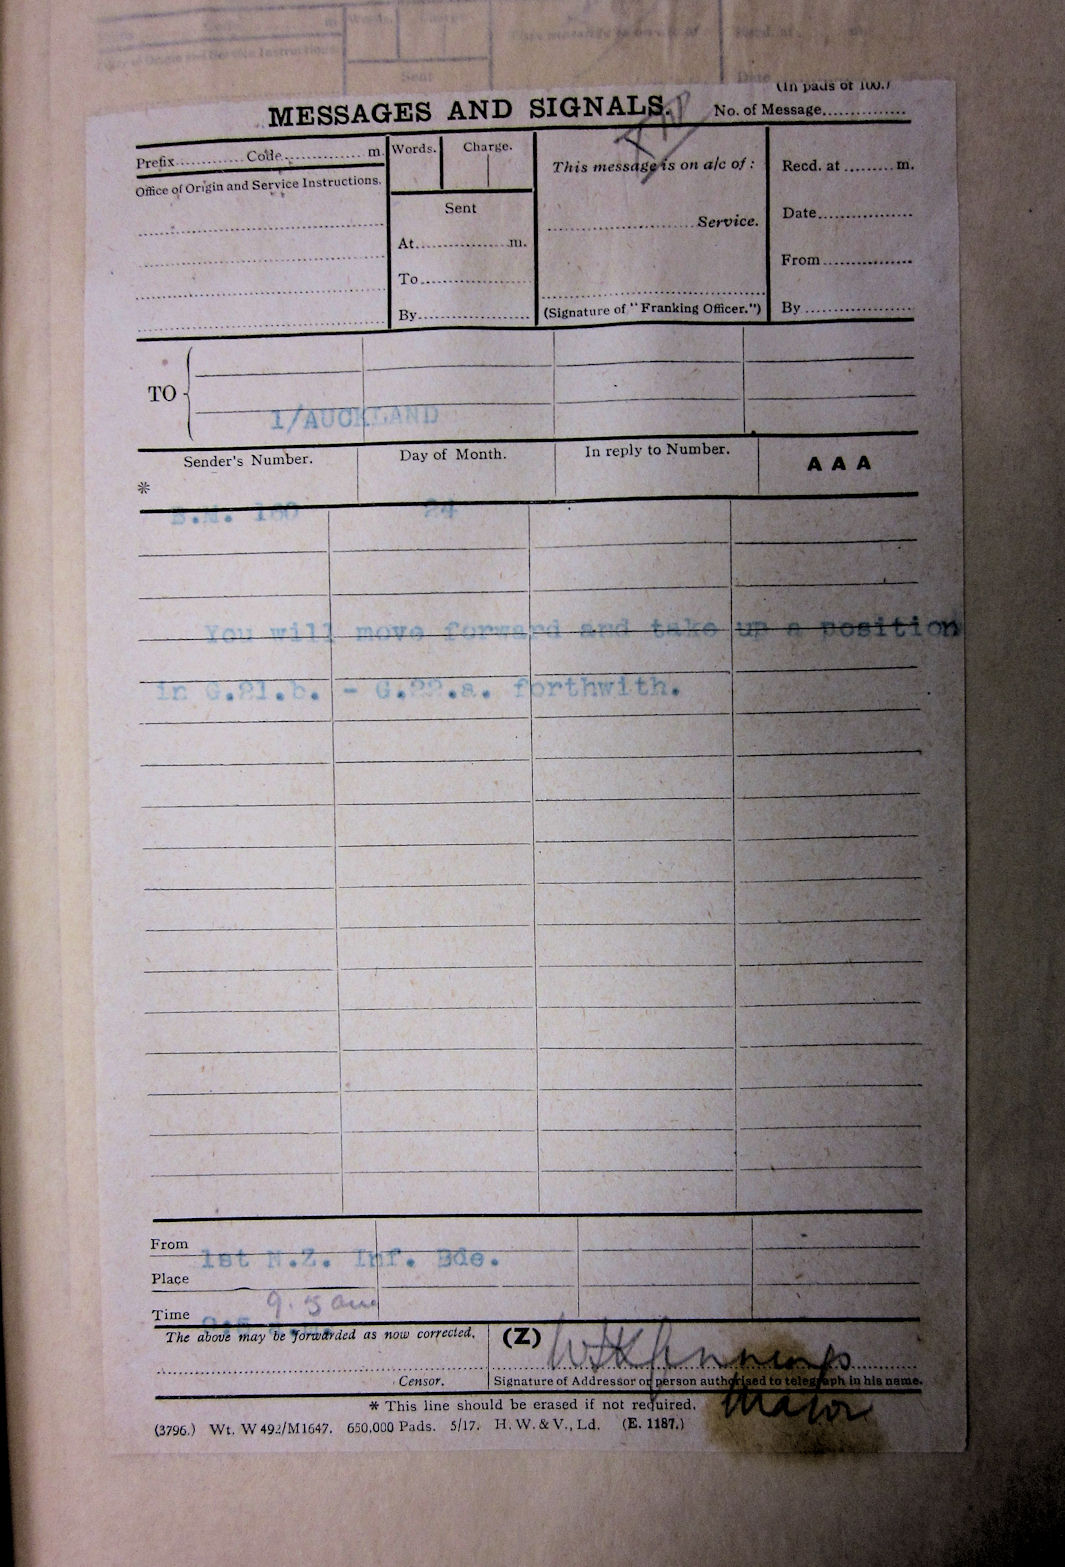 (In pads of 100.)
MESSAGES AND SIGNALS. No. of Message
Prefix Code m Words. Charge. This message is on a/c of: Recd. at m.
Office of Origin and Service Instructions.
Sent
Service. Date
At m.
To From
By (Signature of "Franking Officer.") By
TO
1/AUCKLAND
Sender's Number. Day of Month. In reply to Number. AAA
*
B.M. 180 24
You will move forward and take up a position
in G.21.b. - G.22.a. forthwith.
From 1st N.Z. Inf. Bde.
Place
Time 9.5 am
The above may be forwarded as now corrected. (Z) Jennings
Censor. Signature of Addressor or person authorised to telegraph in his name.
Major
* This line should be erased if not required.
(3796.) Wt. W 492/M1647. 650,000 Pads. 5/17. H. W. & V., Ld. (E. 1187.)